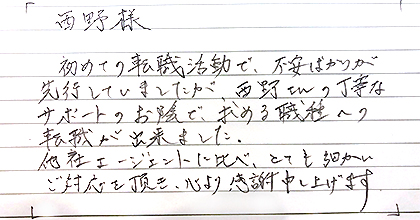 西野様
初めての転職活動で、不安ばかりが
先行していましたが、西野さんの丁寧な
サポートのお陰で、求める職種への
転職が出来ました。
他社エージェントに比べ、とても細かい
ご対応を頂き、心より感謝申し上げます。